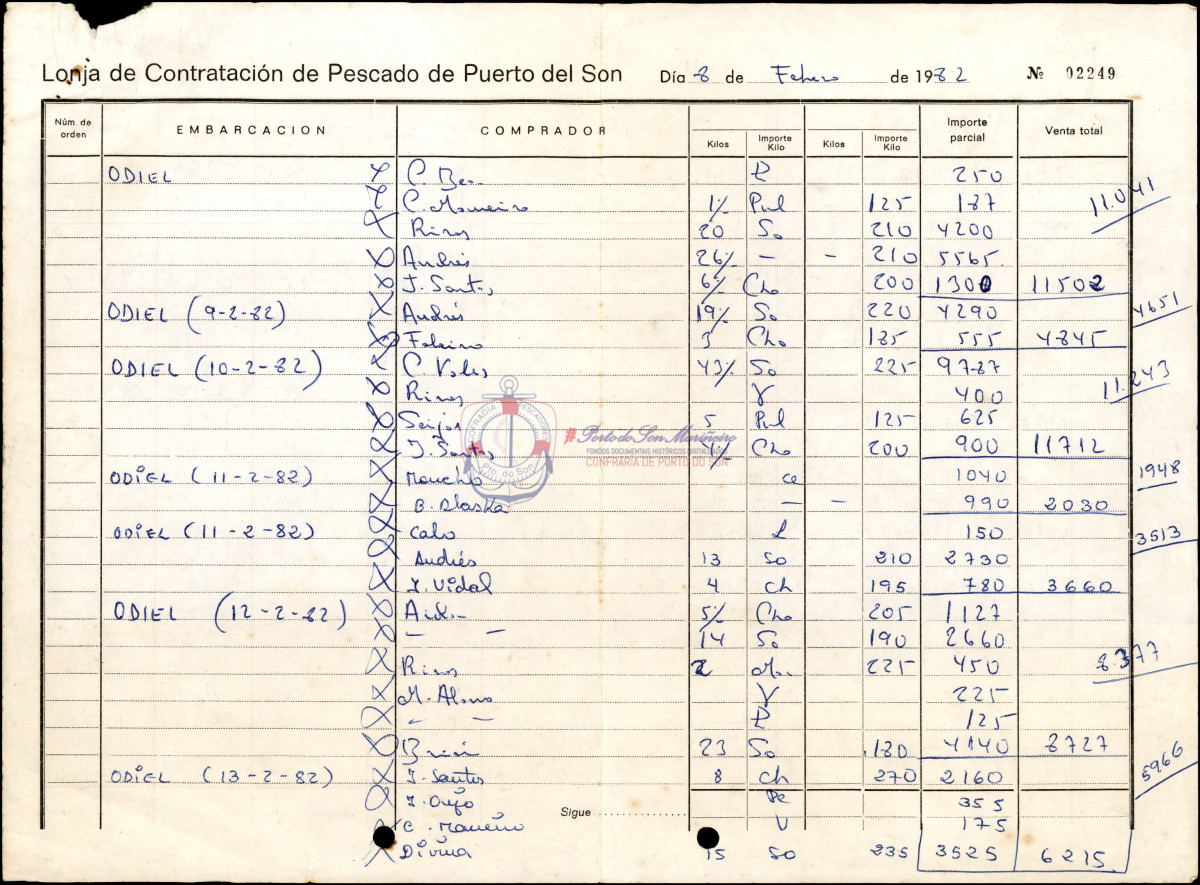 Lonja de Contratación de Pescado de Puerto del Son Día 8 de Febrero de 1982 Nº 02249
Núm. de orden EMBARCACION COMPRADOR Kilos Importe Kilo Kilos Importe Kilo Importe parcial Venta total
ODIEL C. P 250
C. Moureiro 1½ Pul 125 187 11.041
Rivas 20 So 210 4200
Andrés 26½ — - 210 5565
J. Santos 6½ Cho 200 1300 11502
ODIEL (9-2-82) Andrés 19½ So 220 4290 4651
3 Cho 185 555 4845
ODIEL (10-2-82) C. Vales 43½ So 225 9787
Rivas V 400 11.243
Seijas 5 Pul 125 625
J. Santos 4½ Cho 200 900 11712
ODIEL (11-2-82) Moucho ce 1040 1948
B. Alaska — - 990 2030
ODIEL (11-2-82) Calo L 150 3513
Andrés 13 So 210 2730
J. Vidal 4 Ch 195 780 3660
ODIEL (12-2-82) 5½ Cho 205 1127
— — 14 So 190 2660
Rivas 2 225 450 8.377
M. Alonso V 225
— — P 125
Brión 23 So 180 4140 8727
ODIEL (13-2-82) J. Santos 8 Ch 270 2160 5966
J. Orejo Pe 355
Sigue
C. Maneiro V 175
Divina 15 So 235 3525 6215
COFRADIA PESCADORES
Pto. do Son
#Porto do Son Mariñeiro
FONDOS DOCUMENTAIS HISTÓRICOS DIGITALIZADOS
CONFRARIA DE PORTO DO SON